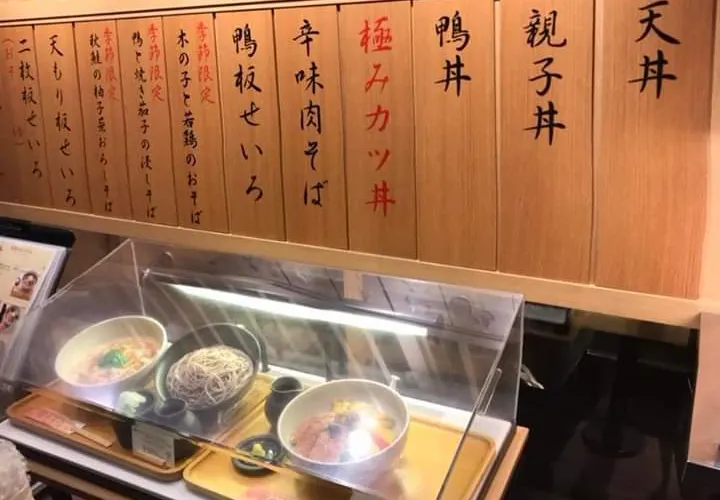 天丼
親子丼
鴨丼
極みカツ丼
辛味肉そば
鴨板せいろ
季節限定
木の子と若鶏のおそば
季節限定
鴨と焼き茄子の浸しそば
季節限定
秋鮭の柚子煮おろしそば
天もり板せいろ
二枚板せいろ